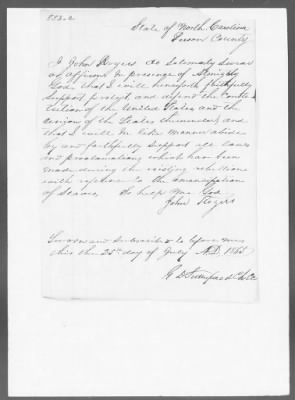 State of North Carolina
Person County
I John Rogers do Solemnly Swear
or affirm in presence of Almighty
God, that I will henceforth faithfully
Support protect and defend the Consti
tution of the United States and the
union of the States thereunder, and
that I will in like manner abide
by and faithfully Support all laws
and proclamations which has been
made during the existing rebellion
with reference to the emancipation
of Slaves, So help me God
John Rogers
Sworn and Subscribed to before me
this the 25th day of July A.D. 1865